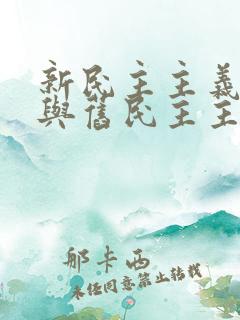 新民主主義
與舊民主主
那卡西
未經同意禁止轉載